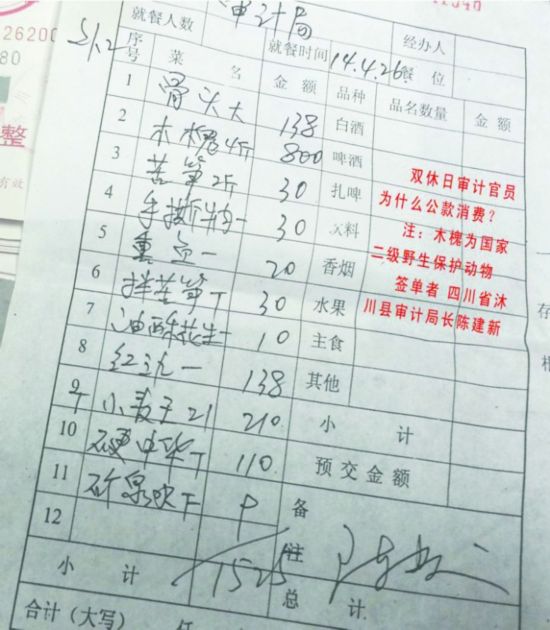 26200
80
整
有效
就餐人数 审计局 经办人
S1.2 序号 菜名 金额 就餐时间 14.4.26. 餐位
品种 品名数量 金额
1 骨头大 138 白酒
2 木槐4斤 800 啤酒
3 苦笋2斤 30 扎啤
4 手撕 30 料
5 一 20 香烟
6 拌苦笋 30 水果
7 油酥花生一 10 主食
8 红 一 138 其他
9 小麦子21 210 小计
10 硬中华 110 预交金额
11 矿泉 P 备注
12
小计 1525 总计
合计(大写)
双休日审计官员
为什么公款消费?
注:木槐为国家
二级野生保护动物
签单者 四川省沐
川县审计局长陈建新
存